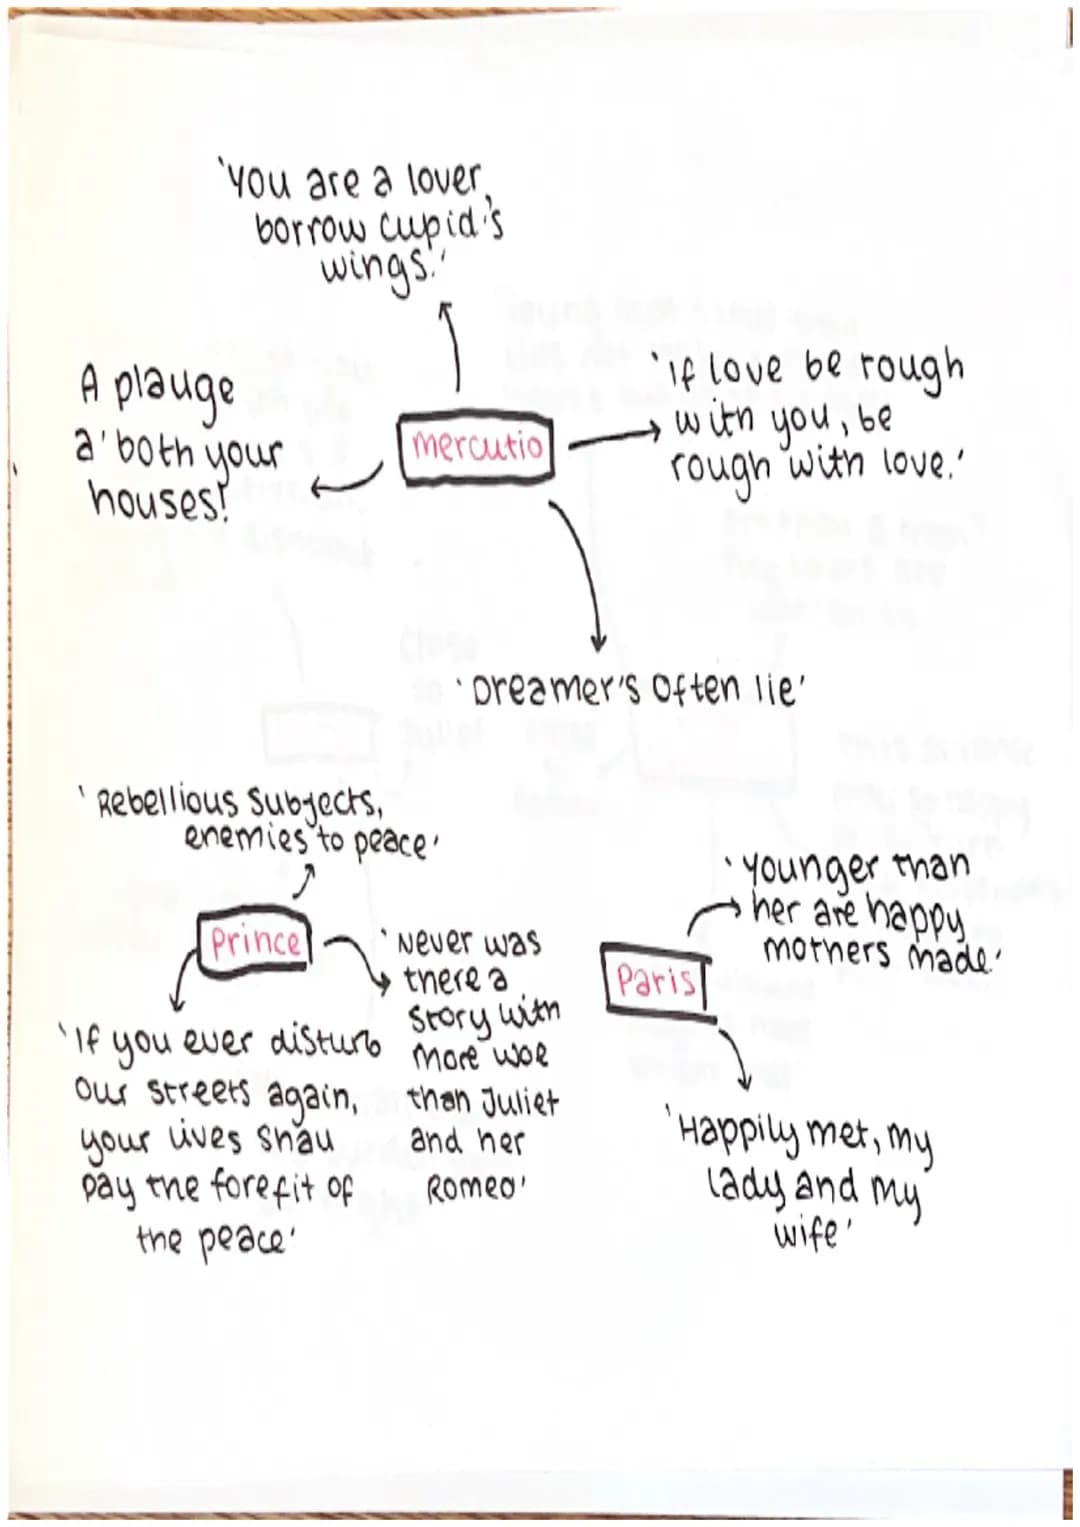 'You are a lover,
borrow Cupid's
wings.'
A plauge
a' both your
houses!
Mercutio
'if love be rough
with you, be
rough with love.'
'Dreamer's Often lie'
'Rebellious Subjects,
enemies to peace'
Prince
'Never was
there a
Story with
more woe
than Juliet
and her
Romeo'
'If you ever disturb
Our streets again,
your lives shall
pay the forefit of
the peace'
'younger than
her are happy
mothers made.'
Paris
'Happily met, my
lady and my
wife'